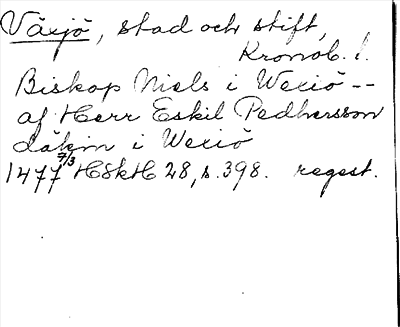 Växjö, stad och stift,
Kronob. l.
Biskop Niels i Wexiö --
af Herr Eskil Pedhersson
däkin i Wexiö
1477 7/3 HSkH 28, s. 398. regest.